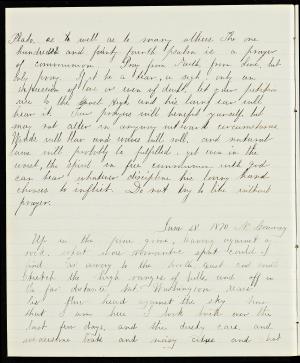 Plato, as well as to many others. The one
hundred and forty fourth psalm is a prayer
of communion. Pray from Faith, from love, but
only pray. If it be a tear, a sigh only an
expression of love or even of doubt, let your petition
rise to the Great High and his loving ear will
hear it. Our prayers will benefit yourself but
may not alter in anyway outward circumstance
Winds will roar and waves will roll, and natural
laws will probably be fulfilled, yet even in the
worst, the spirit in free communion with God
can bear whatever discipline his loving hand
chooses to inflict. Do not try to live without
prayer.
June 28 1870 N.
Up in the pine grove, leaning against a
rock, what more romantic spot could I
find. Far away to the north east and
stretch the high ranges of hills, and off in
the far distance Mt. Washington rears
his blue head against the sky. Now
that I am here I look back over the
last few days, and the dusky cars and
and noisy cities and hot